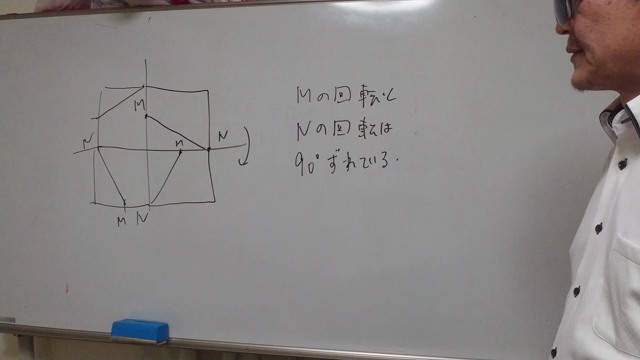 Mの回転と
Nの回転は
90°ずれている.
M
N
N
M
M
N